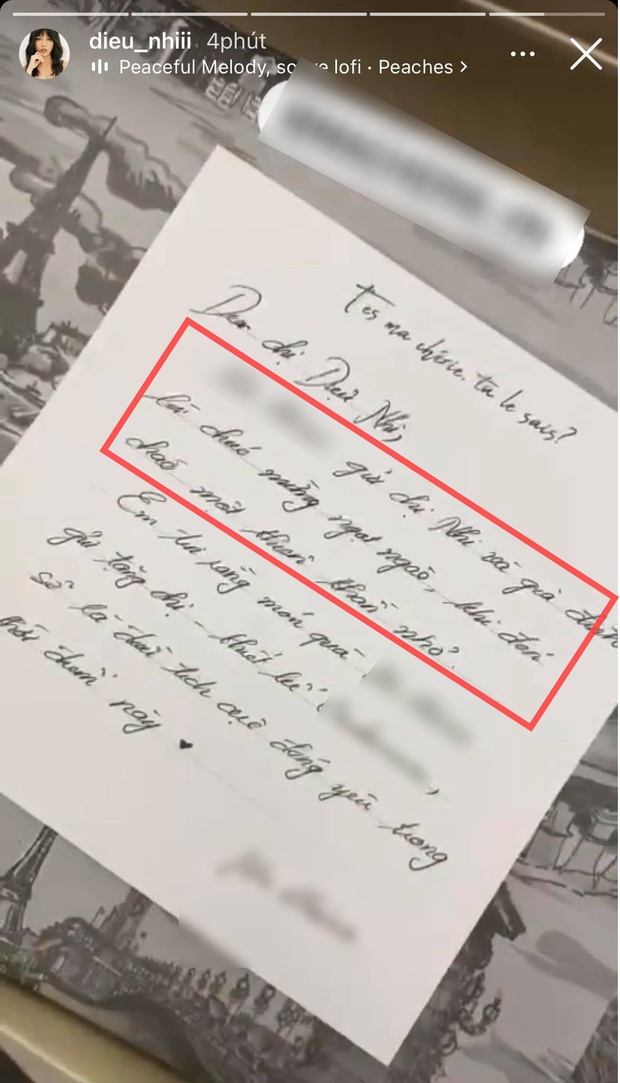 dieu_nhiii 4phút
Peaceful Melody, so ve lofi · Peaches
T'es ma chérie, tu le sais?
Dear chị Diệu Nhi,
gửi chị Nhi và gia đình
lời chúc mừng ngọt ngào, khi đón
chào một thiên thần nhỏ.
Em tin rằng món quà
gửi tặng chị -
sẽ là
tích cực đáng yêu trong
thời điểm này ♥